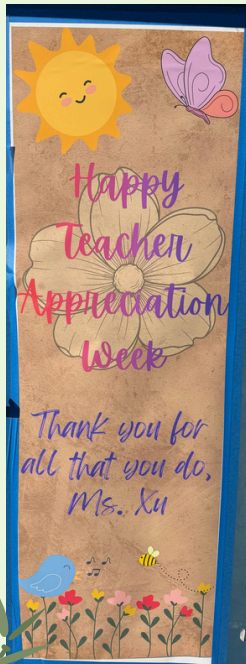 Happy
Teacher
Appreciation
Week
Thank you for
all that you do,
Ms. Xu